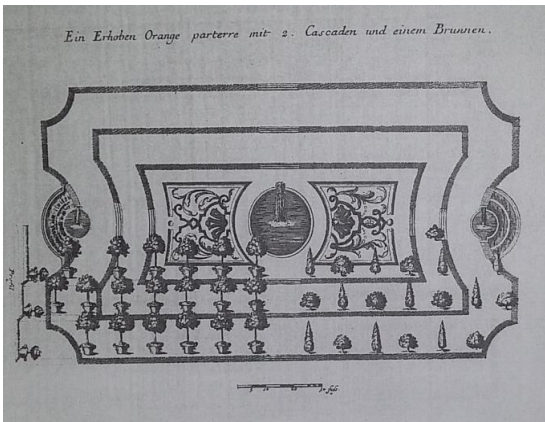 Ein Erhoben Orange parterre mit 2. Cascaden und einem Brunnen.
5 10 20 30 fuß.